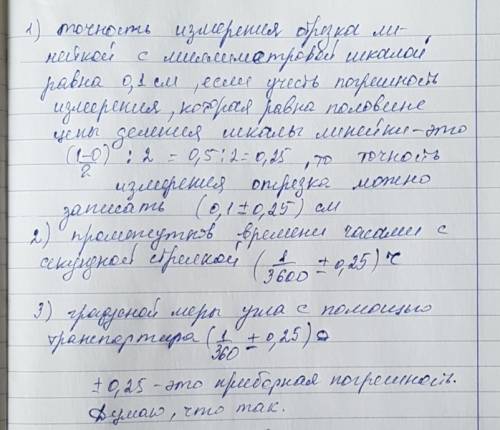 1) точность измерения отрезка ли-
нейкой с миллиметровой шкалой
равна 0,1 см, если учесть погрешность
измерения, которая равна половине
цены деления шкалы линейки - это
(1-0)/2 : 2 = 0,5 : 2 = 0,25, то точность
измерения отрезка можно
записать (0,1 ± 0,25) см
2) промежутков времени часами с
секундной стрелкой (1/3600 ± 0,25) ч
3) градусной меры угла с помощью
транспортира (1/360 ± 0,25)°
± 0,25 - это приборная погрешность.
Думаю, что так.